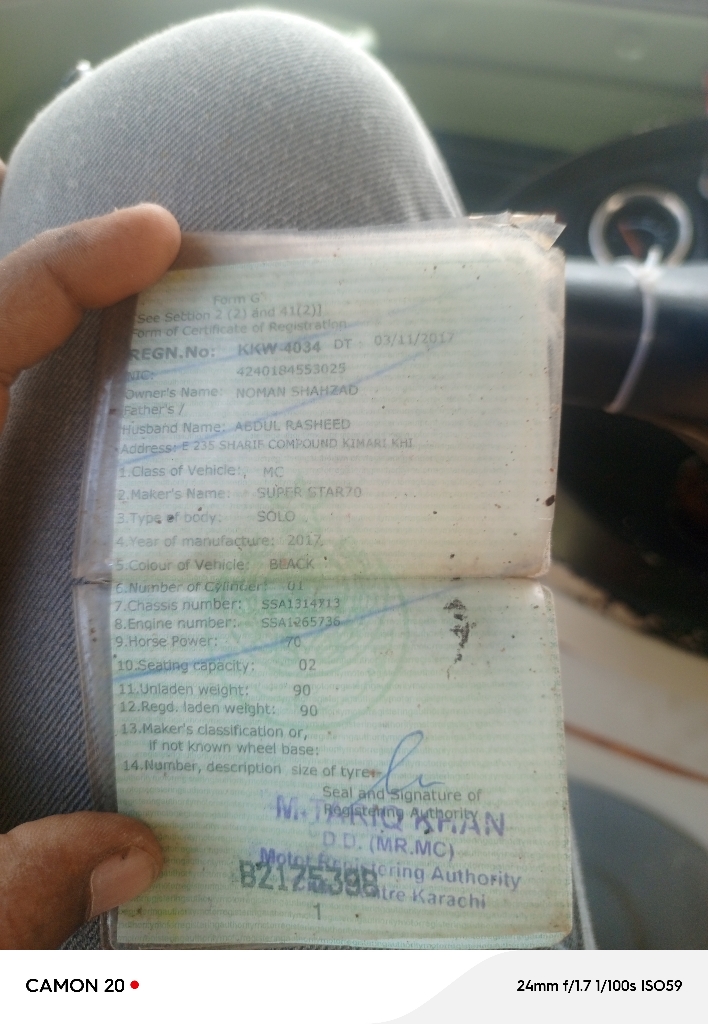 Form G
[See Section 2 (2) and 41(2)]
Form of Certificate of Registration
REGN.No: KKW 4034 DT : 03/11/2017
NIC: 4240184553025
Owner's Name: NOMAN SHAHZAD
Father's /
Husband Name: ABDUL RASHEED
Address: E 235 SHARIF COMPOUND KIMARI KHI
1.Class of Vehicle: MC
2.Maker's Name: SUPER STAR70
3.Type of body: SOLO
4.Year of manufacture: 2017
5.Colour of Vehicle: BLACK
6.Number of Cylinder: 01
7.Chassis number: SSA1314713
8.Engine number: SSA1265736
9.Horse Power: 70
10.Seating capacity: 02
11.Unladen weight: 90
12.Regd. laden weight: 90
13.Maker's classification or,
if not known wheel base:
14.Number, description size of tyre:
Seal and Signature of
Registering Authority
M.TARIQ KHAN
D.D. (MR.MC)
Motor Registering Authority
Centre Karachi
BZ175398
1
CAMON 20
24mm f/1.7 1/100s ISO59